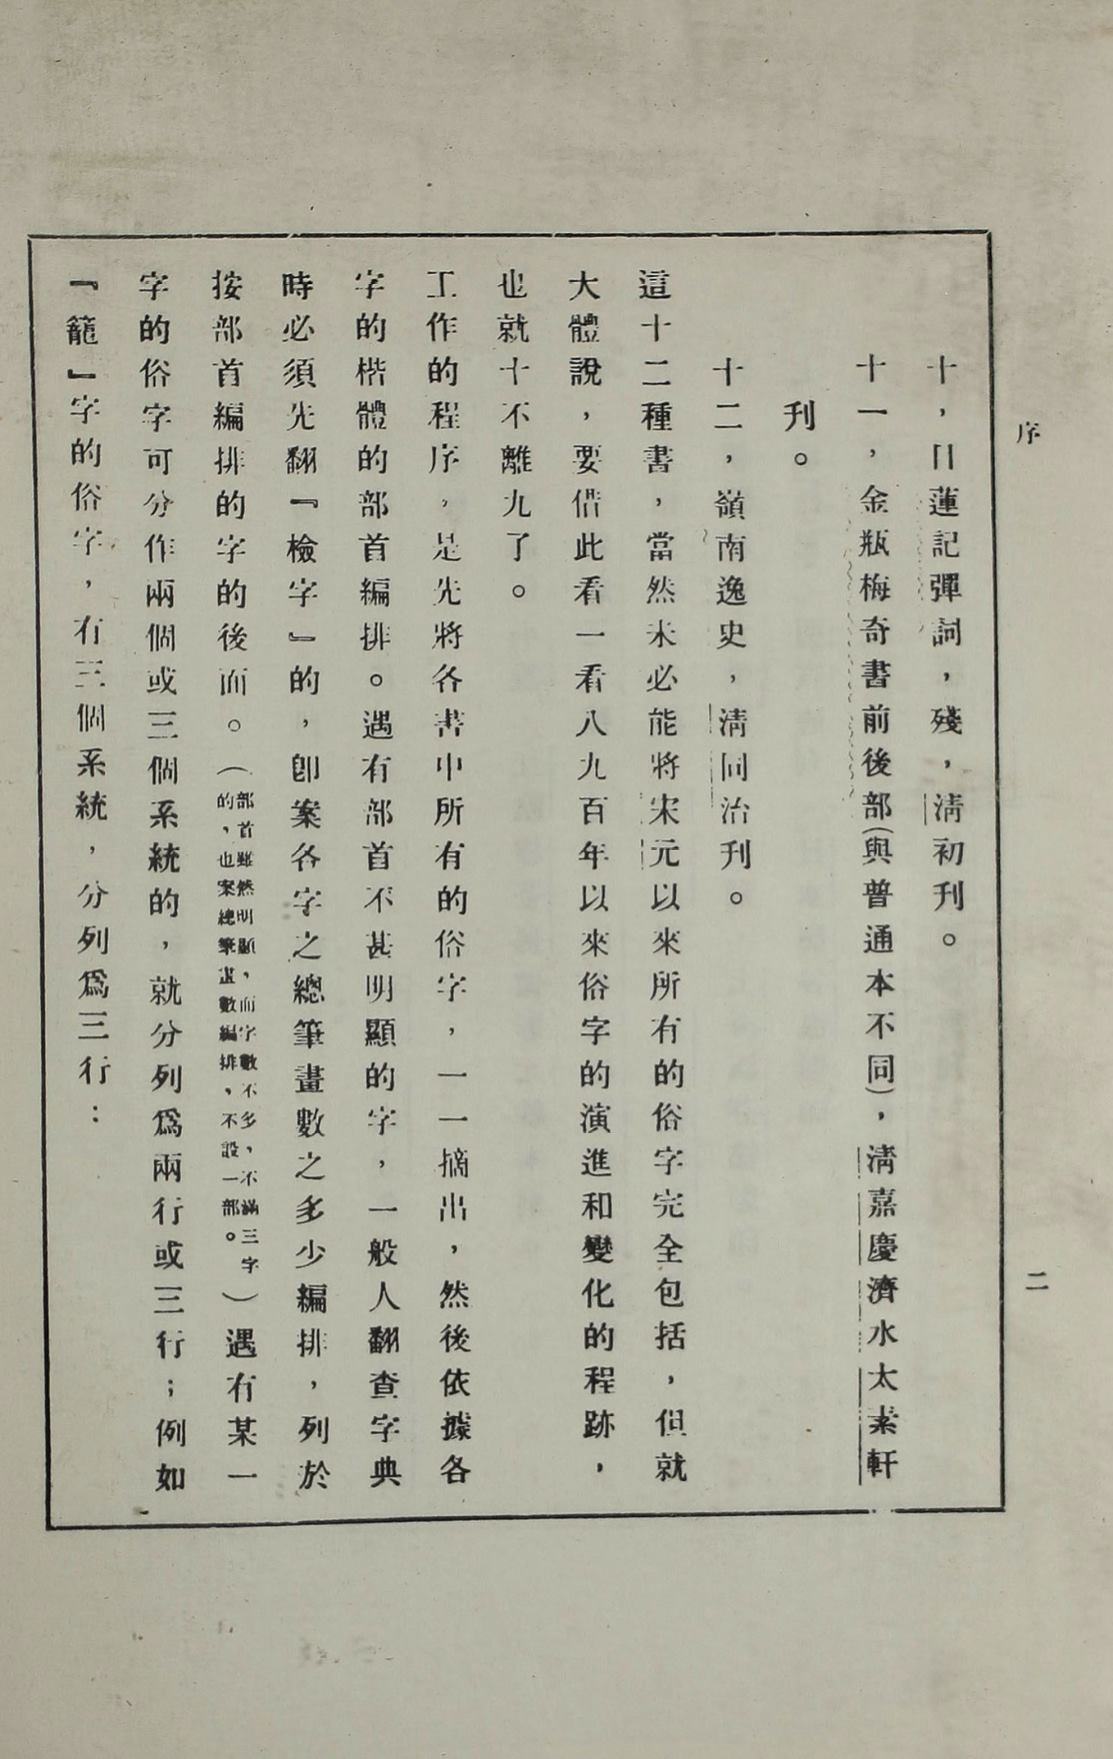 序
二
十，目蓮記彈詞，殘，淸初刊。
十一，金瓶梅奇書前後部（與普通本不同），淸嘉慶濟水太素軒
刊。
十二，嶺南逸史，淸同治刊。
這十二種書，當然未必能將宋元以來所有的俗字完全包括，但就
大體說，要借此看一看八九百年以來俗字的演進和變化的程跡，
也就十不離九了。
工作的程序，是先將各書中所有的俗字，一一摘出，然後依據各
字的楷體的部首編排。遇有部首不甚明顯的字，一般人翻查字典
時必須先翻『檢字』的，卽案各字之總筆畫數之多少編排，列於
按部首編排的字的後面。（部首雖然明顯，而字數不多，不滿三字的，也案總筆畫數編排，不設一部。）遇有某一
字的俗字可分作兩個或三個系統的，就分列爲兩行或三行；例如
『籠』字的俗字，有三個系統，分列爲三行：